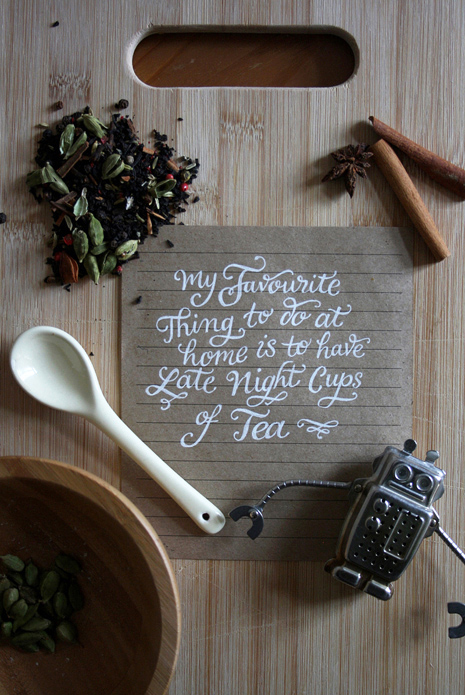 My Favourite
Thing to do at
home is to have
Late Night Cups
of Tea